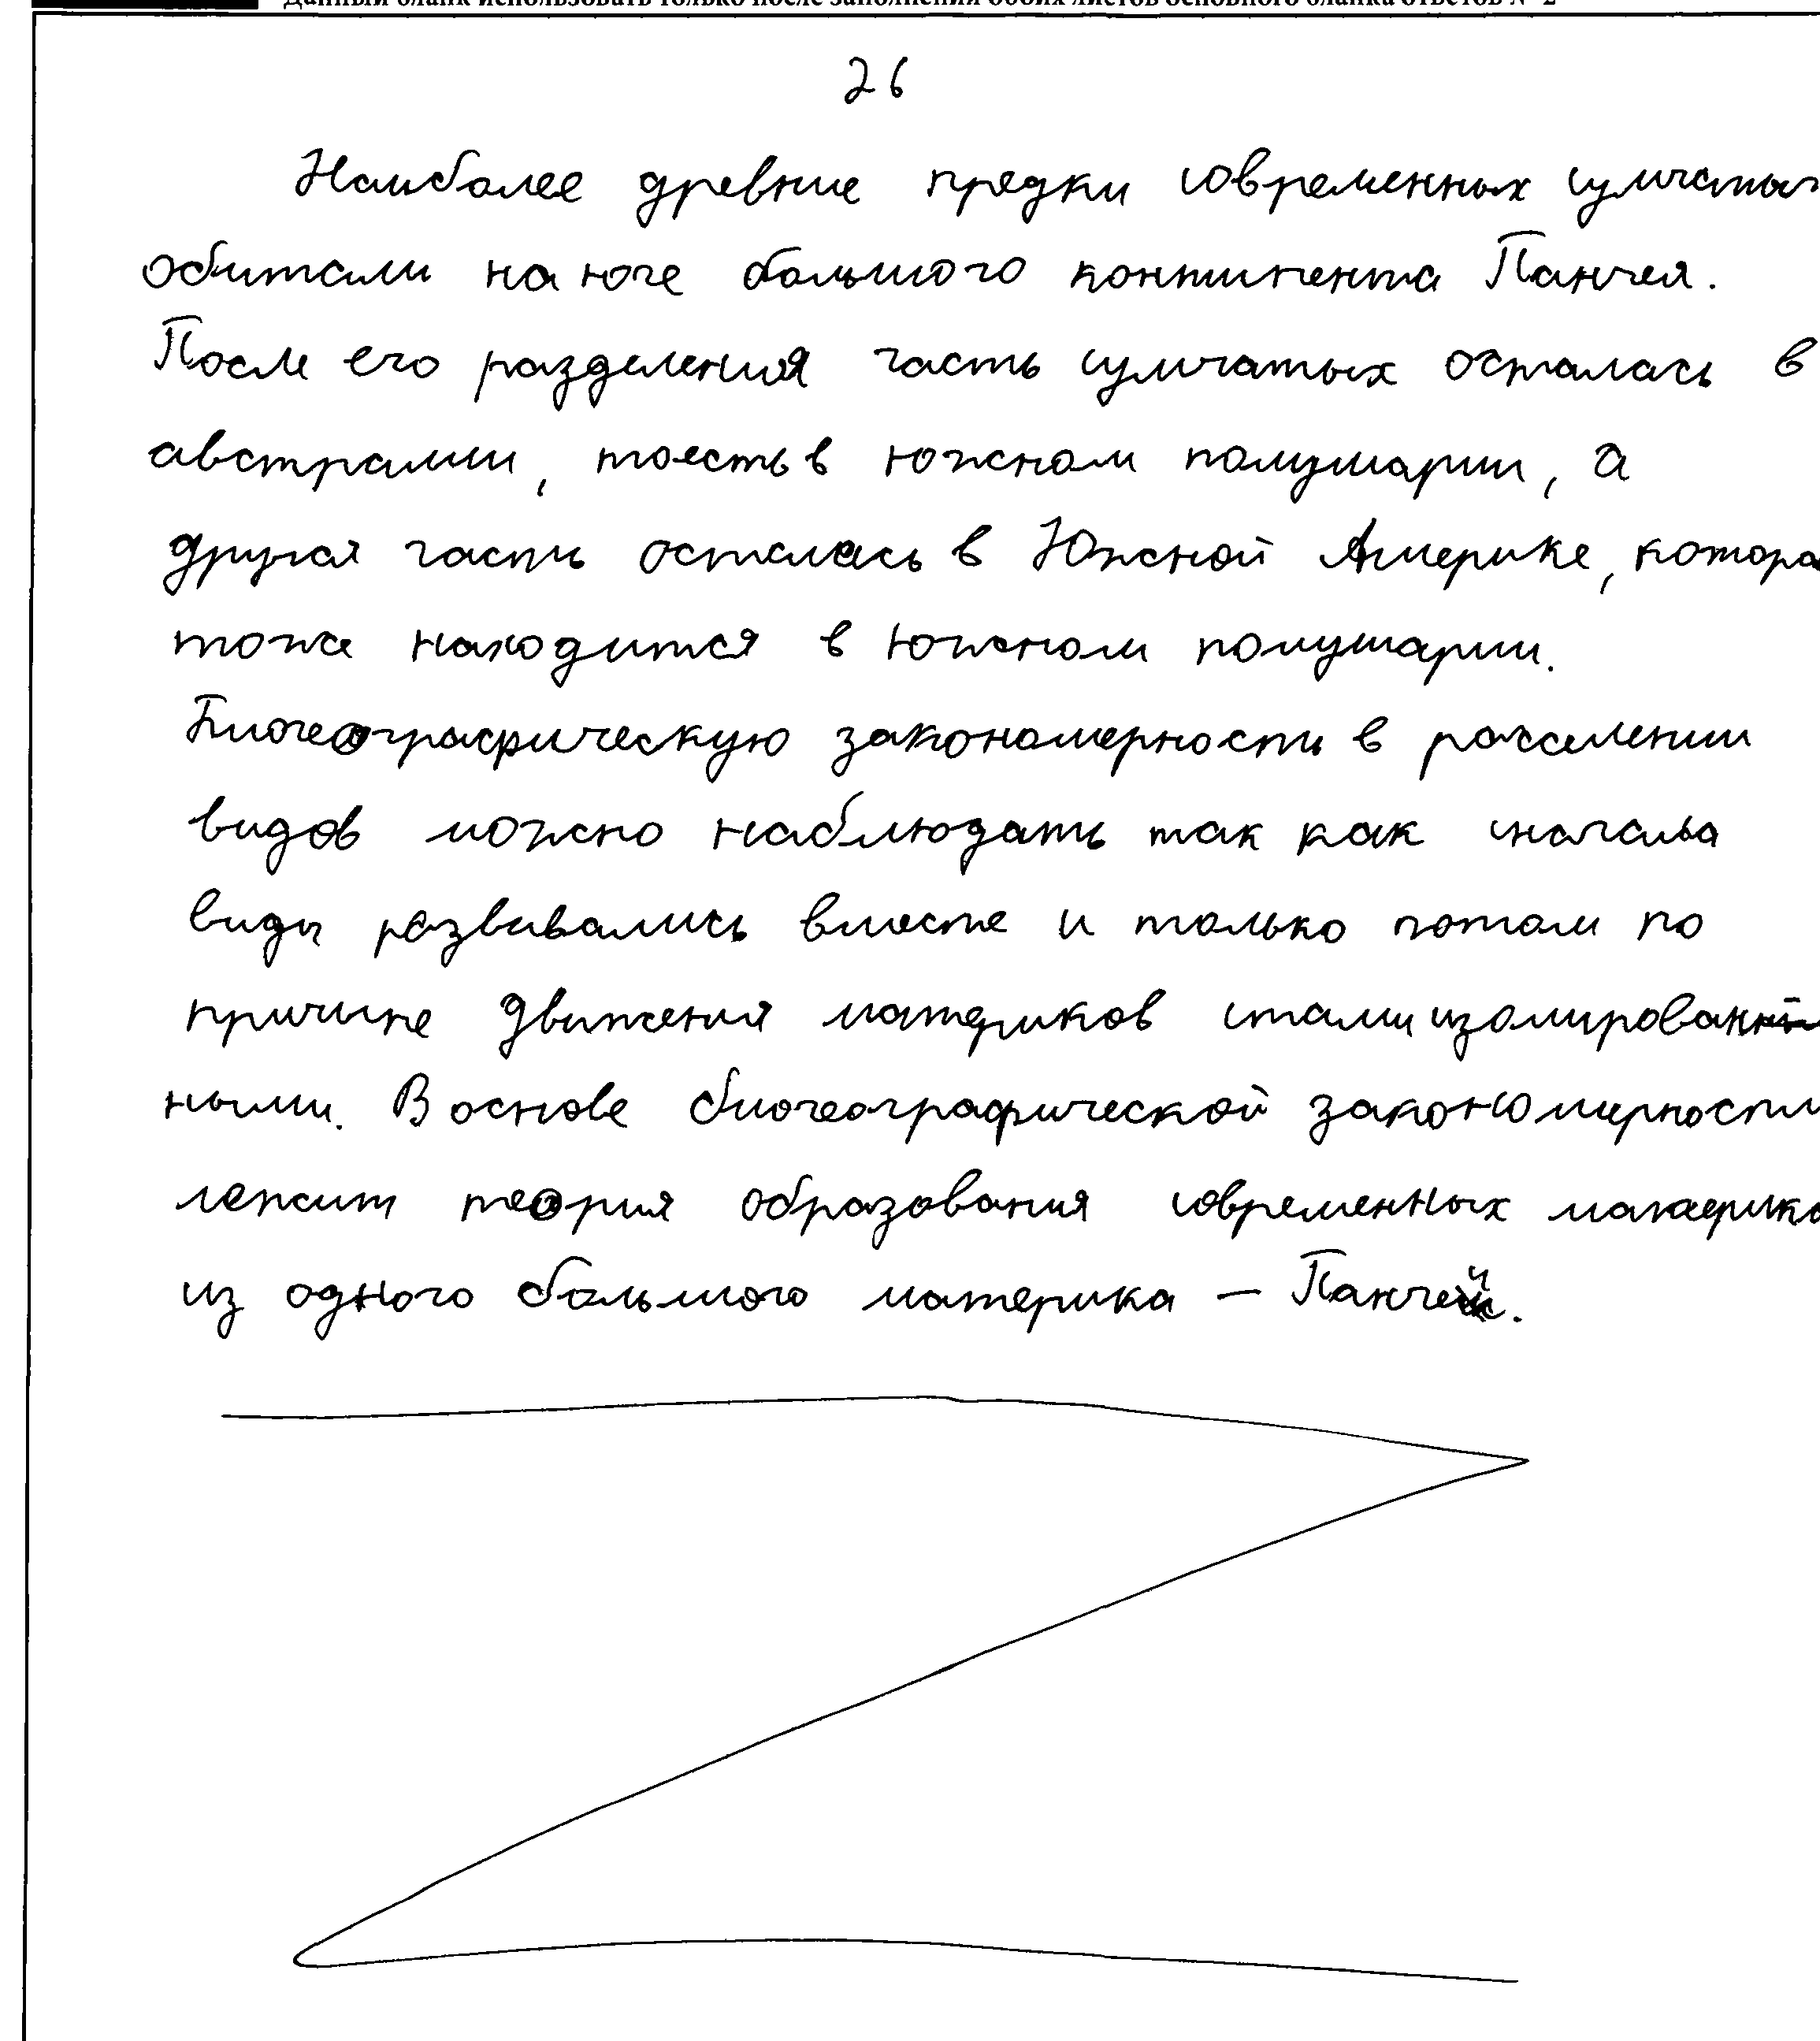 Данный бланк использовать только после заполнения обоих листов основного бланка ответов № 2
26
Наиболее древние предки современных сумчатых
обитали на юге большого континента Пангея.
После его разделения часть сумчатых осталась в
австралии, тоесть в южном полушарии, а
другая часть осталась в Южной Америке, котора
тоже находится в южном полушарии.
Биогеографическую закономерность в расселении
видов можно наблюдать так как сначала
виды развивались вместе и только потом по
причине движения материков стали изолирован
ными. В основе биогеографической закономерности
лежит теория образования современных материко
из одного большого материка — Пангеи.